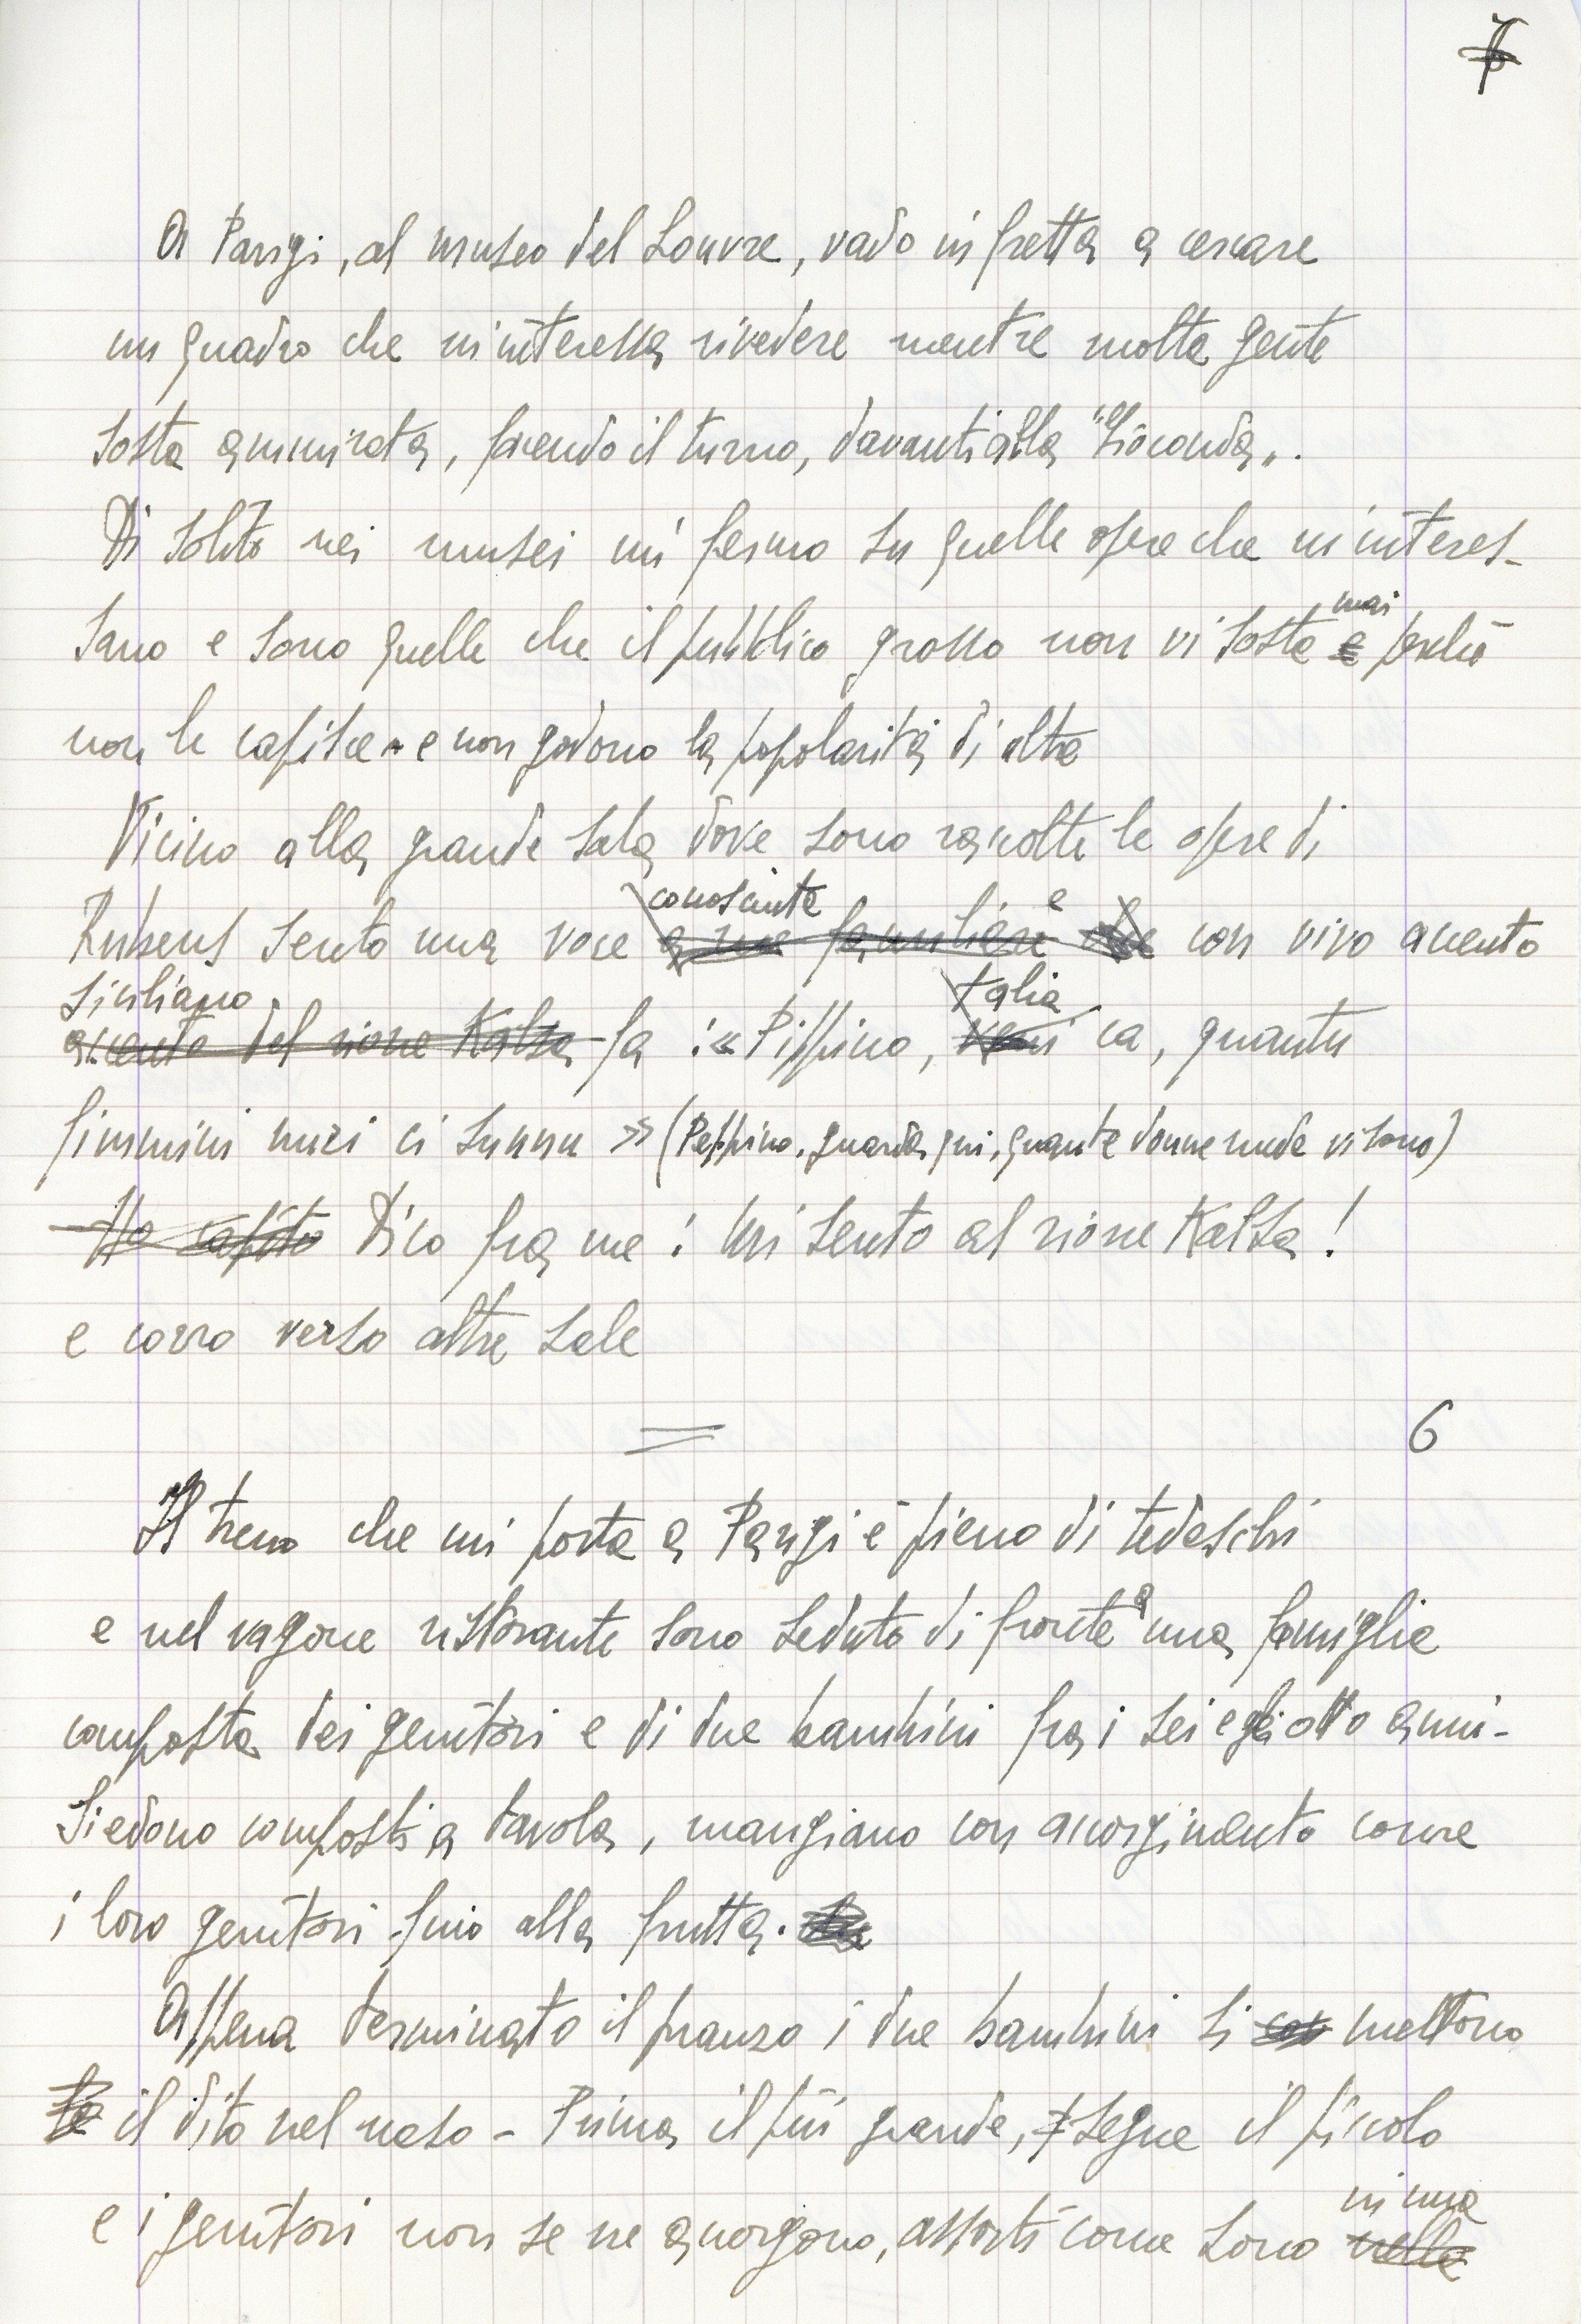 A Parigi, al museo del Louvre, vado in fretta a cercare
un quadro che m'interessa rivedere mentre molta gente
sosta ammirata, facendo il turno, davanti alla "Gioconda".
Di solito nei musei mi fermo su quelle opere che m'interes-
sano e sono quelle che il pubblico grosso non vi sosta mai perché
non le capisce e non godono la popolarità di altre
Vicino alla grande sala dove sono raccolte le opere di
Rubens sento una voce conosciuta e con vivo accento
siciliano fa : «Pippino, talia ca, quantu
fimmini nuri ci sunnu » (Peppino, guarda qui, quante donne nude vi sono)
Ha capito Dico fra me : Mi sento al rione Kalsa !
e corro verso altre sale
6
Il treno che mi porta a Parigi è pieno di tedeschi
e nel vagone ristorante sono seduto di fronte a una famiglia
composta dei genitori e di due bambini fra i sei e gli otto anni-
Siedono composti a tavola, mangiano con accorgimento come
i loro genitori fino alla frutta.
Appena terminato il pranzo i due bambini si mettono
il dito nel naso - Prima il più grande, segue il piccolo
e i genitori non se ne accorgono, assorti come sono in una